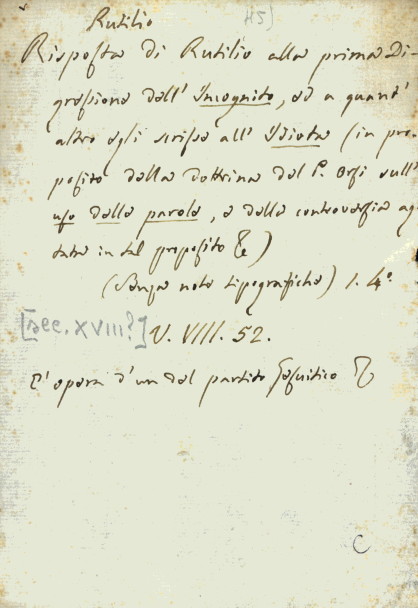 Rutilio
45)
Risposta di Rutilio alla prima Di-
gressione dell' Incognito, ed a quant'
altro egli scrisse all' Idiota (in pro-
posito della Dottrina del P. Orsi sull'
uso delle parole, e della controversia agi-
tata in tal proposito &)
(Senza note tipografiche) 1. 4°
[sec. XVIII?] V. VIII. 52.
E' opera d'un del partito Gesuitico &
C